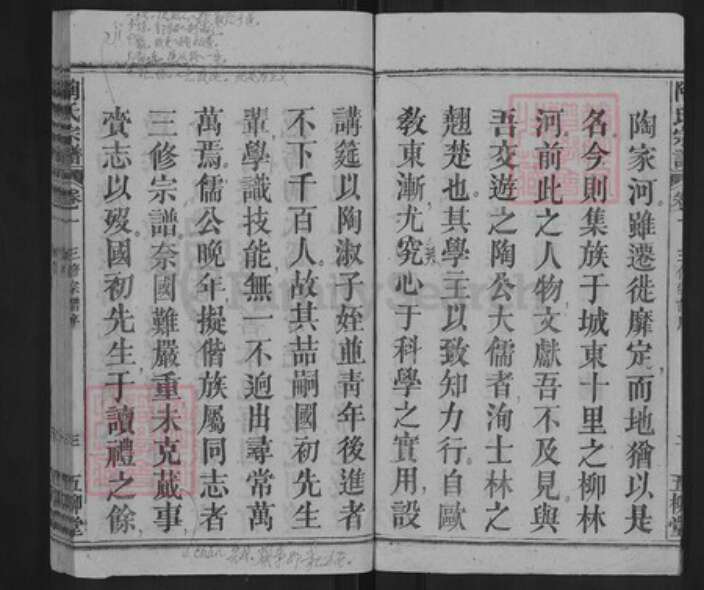 陶家河雖遷徙靡定而地猶以是
名今則集族于城東十里之柳林
河前此之人物文獻吾不及見與
吾交遊之陶公大儒者洵士林之
翹楚也其學主以致知力行自歐
教東漸尤究心于科學之實用設
講筵以陶淑子姪並青年後進者
不下千百人故其喆嗣國初先生
輩學識技能無一不逈出尋常萬
萬焉儒公晚年擬偕族屬同志者
三修宗譜奈國難嚴重未克蕆事
賫志以歿國初先生于讀禮之餘
陶氏宗譜 卷一 三修宗譜序 三 五柳堂
FamilySearch